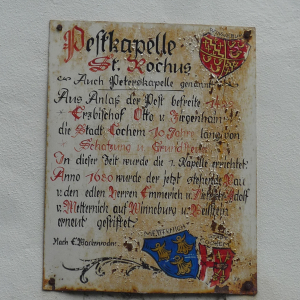 Pestkapelle
St. Rochus
Auch Peterskapelle genannt
Aus Anlaß der Pest befreite
Erzbischof Otto v. Ziegenhain
die Stadt Cochem 10 Jahre lang von
Schatzung u.
In dieser Zeit wurde die 1. Kapelle errichtet.
Anno 1680 wurde der jetzt stehende Bau
v. den edlen Herren Emmerich u.
v. Metternich auf Winneburg u. Beilstein
erneut gestiftet.
Nach
METTERNICH